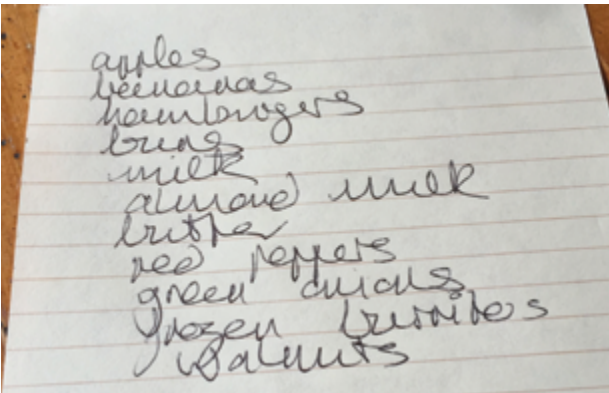 apples
bananas
hamburgers
buns
milk
almond milk
butter
red peppers
green onions
frozen burritos
walnuts